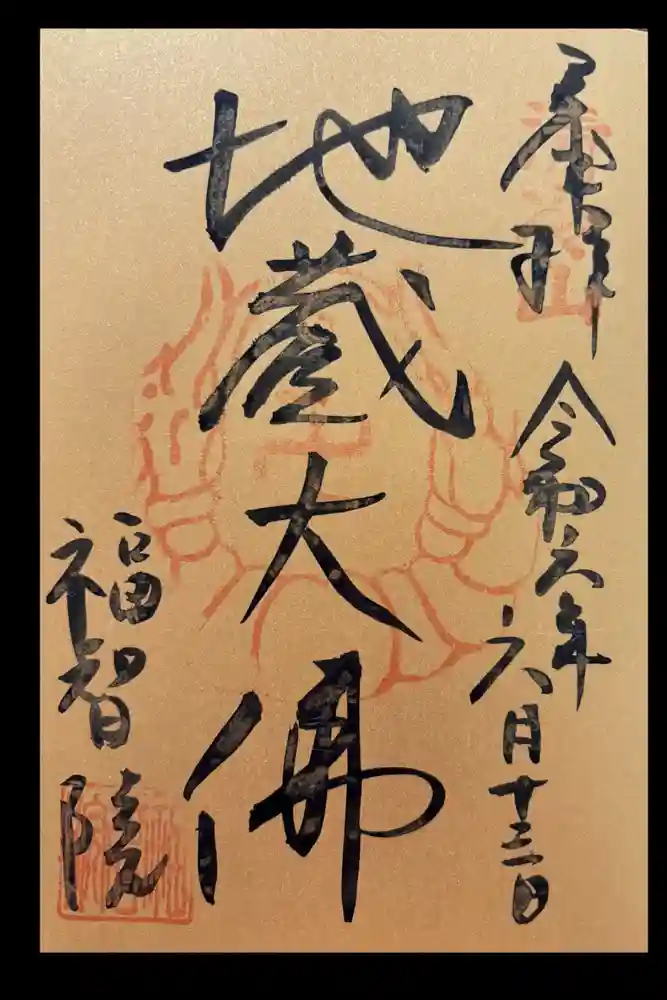 奉拝
令和六年
六月十三日
地蔵大佛
福智院